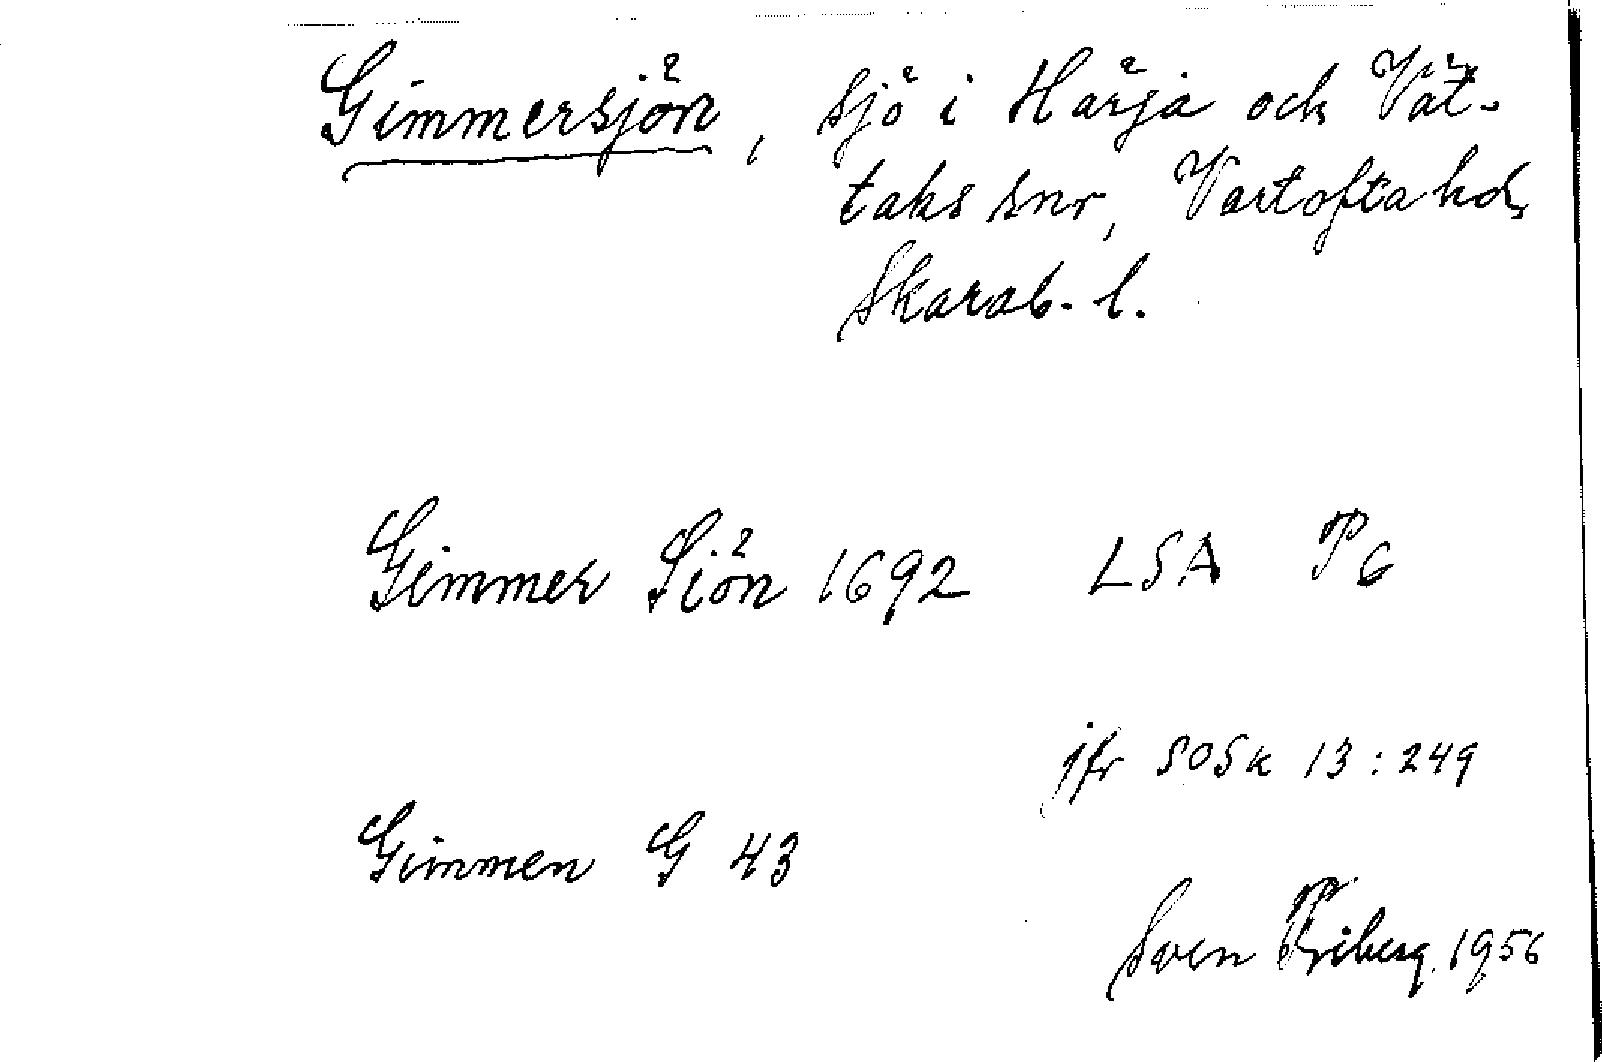 Gimmersjön, sjö i Härja och Vät-
taks snr, Vartofta hd,
Skarab. l.
Gimmer Siön 1692 LSA P6
jfr SOSk 13:249
Gimmen G 43
Sven Friberg. 1956